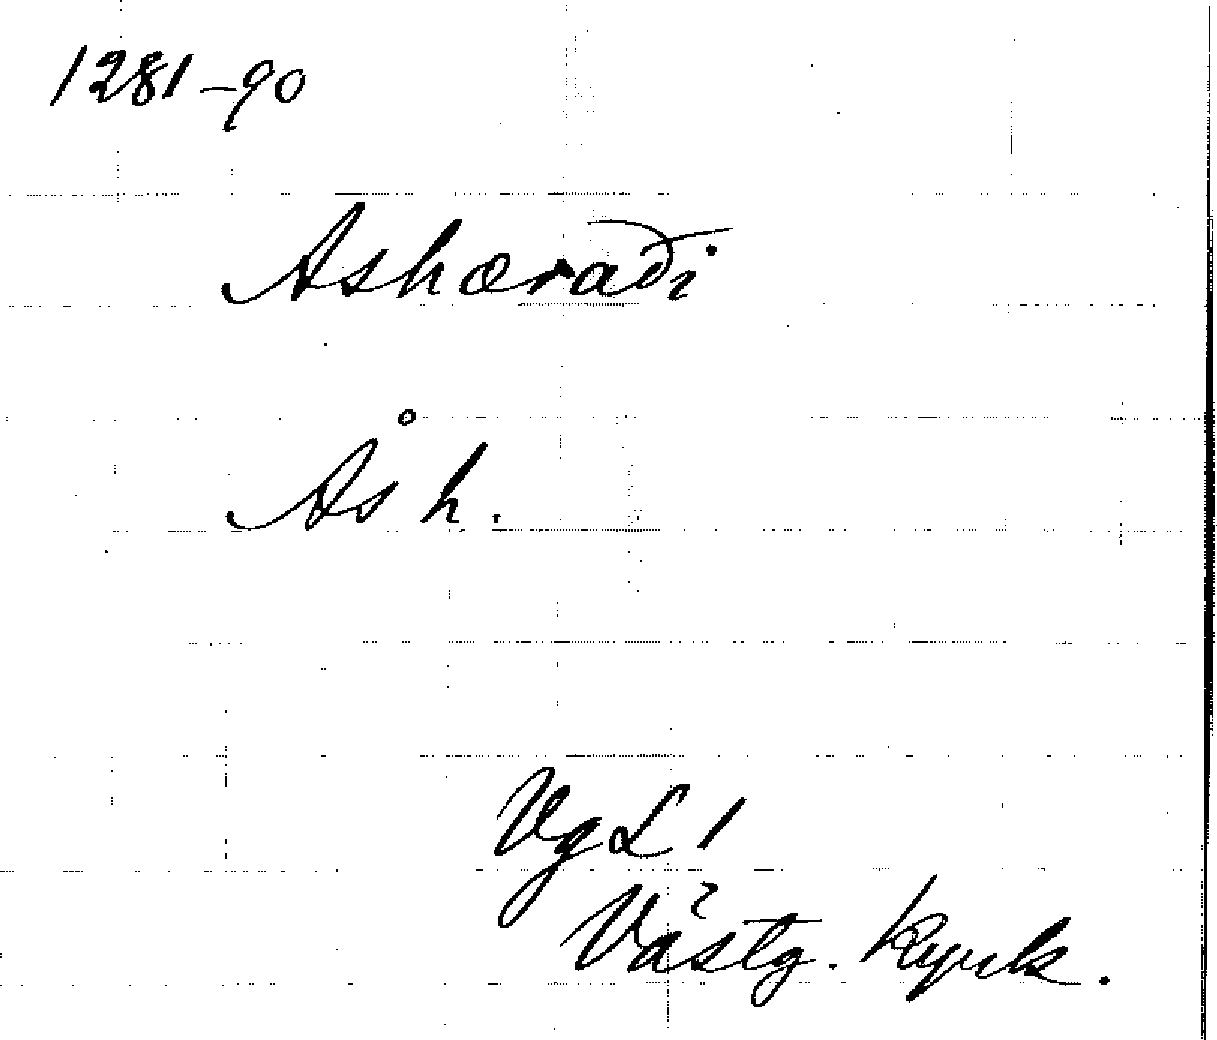 1281-90
Ashæraði
Ås h.
VgL 1
Västg. kyrk.